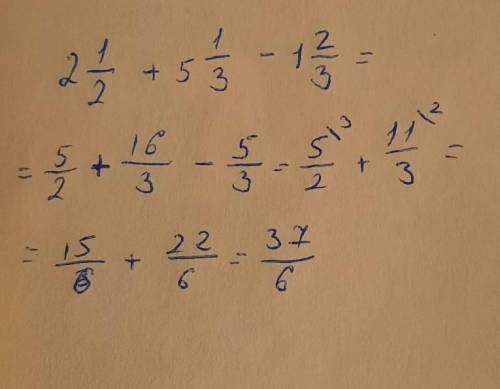 2 1/2 + 5 1/3 - 1 2/3 =
= 5/2 + 16/3 - 5/3 = 5\3/2 + 11\2/3 =
= 15/6 + 22/6 = 37/6